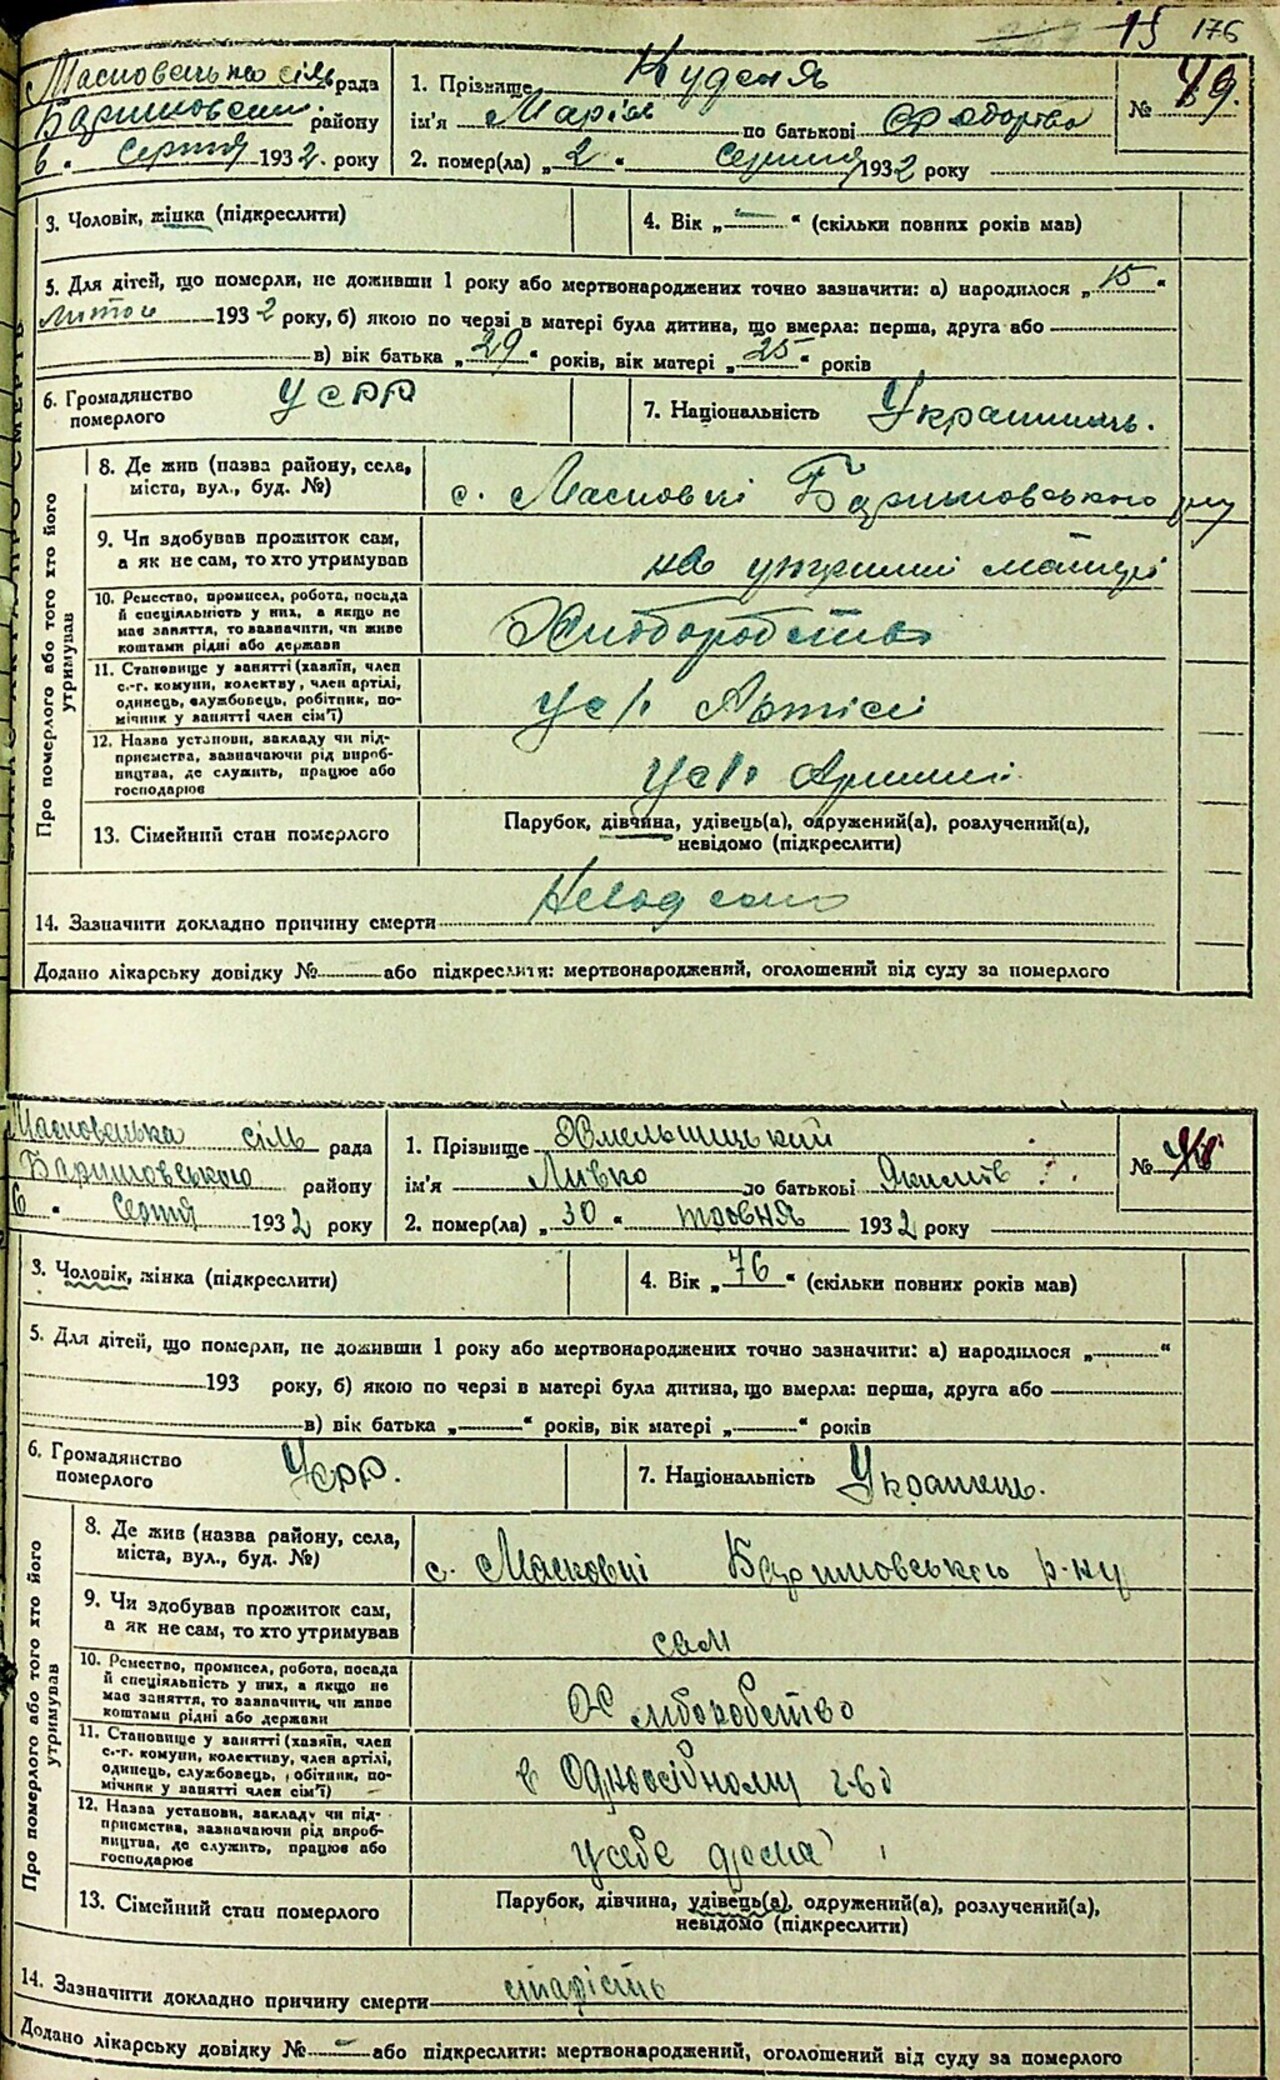 15 176
Масковецька сіль рада
Баришовськ. району
6 " серпня 1932 року
1. Прізвище
ім'я Марія по батькові
2. помер(ла) „ 2 " серпня 1932 року
№ 49.
3. Чоловік, жінка (підкреслити)
4. Вік „ — " (скільки повних років мав)
5. Для дітей, що померли, не доживши 1 року або мертвонароджених точно зазначити: а) народилося „ 15 "
лютого 1932 року, б) якою по черзі в матері була дитина, що вмерла: перша, друга або
в) вік батька „ 29 " років, вік матері „ 25 " років
6. Громадянство
померлого
УСРР
7. Національність Українець.
Про померлого або того хто його утримував
8. Де жив (назва району, села,
міста, вул., буд. №)
с. Масковці Баришовського р-ну
9. Чи здобував прожиток сам,
а як не сам, то хто утримував
на матері
10. Ремество, промисел, робота, посада
й спеціяльність у них, а якщо не
має заняття, то зазначити, чи живе
коштами рідні або держави
Хліборобство
11. Становище у занятті (хазяїн, член
с.-г. комуни, колективу, член артілі,
одинець, службовець, робітник, по-
мічник у занятті член сім'ї)
у с/г Артілі
12. Назва установи, закладу чи під-
приємства, зазначаючи рід вироб-
ництва, де служить, працює або
господарює
у с/г Артілі
13. Сімейний стан померлого
Парубок, дівчина, удівець(а), одружений(а), розлучений(а),
невідомо (підкреслити)
14. Зазначити докладно причину смерти
Додано лікарську довідку № або підкреслити: мертвонароджений, оголошений від суду за померлого
Масковецька сіль рада
Баришовського району
6 " серпня 1932 року
1. Прізвище Хмельницький
ім'я Ливко по батькові
2. помер(ла) „ 30 " травня 1932 року
№
3. Чоловік, жінка (підкреслити)
4. Вік „ 76 " (скільки повних років мав)
5. Для дітей, що померли, не доживши 1 року або мертвонароджених точно зазначити: а) народилося „ "
193 року, б) якою по черзі в матері була дитина, що вмерла: перша, друга або
в) вік батька „ " років, вік матері „ " років
6. Громадянство
померлого
УСРР.
7. Національність Українець.
Про померлого або того хто його утримував
8. Де жив (назва району, села,
міста, вул., буд. №)
с. Масковці Баришовського р-ну
9. Чи здобував прожиток сам,
а як не сам, то хто утримував
сам
10. Ремество, промисел, робота, посада
й спеціяльність у них, а якщо не
має заняття, то зазначити, чи живе
коштами рідні або держави
Хліборобство
11. Становище у занятті (хазяїн, член
с.-г. комуни, колективу, член артілі,
одинець, службовець, робітник, по-
мічник у занятті член сім'ї)
в Односібному г-ві
12. Назва установи, закладу чи під-
приємства, зазначаючи рід вироб-
ництва, де служить, працює або
господарює
у себе дома
13. Сімейний стан померлого
Парубок, дівчина, удівець(а), одружений(а), розлучений(а),
невідомо (підкреслити)
14. Зазначити докладно причину смерти старість
Додано лікарську довідку № — або підкреслити: мертвонароджений, оголошений від суду за померлого